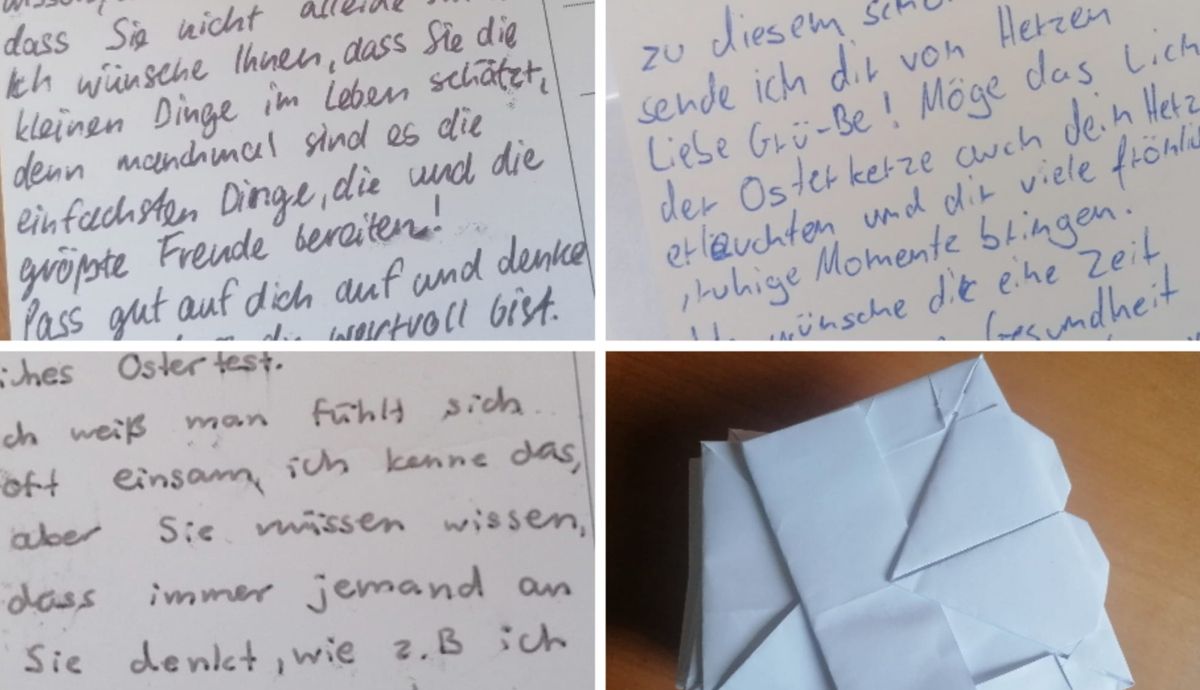 dass Sie nicht alleine
Ich wünsche Ihnen, dass Sie die
kleinen Dinge im Leben schätzt,
denn manchmal sind es die
einfachsten Dinge, die und die
größte Freude bereiten!
Pass gut auf dich auf und denke
wertvoll bist.
zu diesem
sende ich dir von Herzen
Liebe Grü-Be! Möge das Lich
der Osterkerze auch dein Herz
erleuchten und dir viele fröhli
, ruhige Momente bringen.
wünsche dir eine Zeit
Gesundheit
iches Osterfest.
ch weiß man fühlt sich
oft einsam, ich kenne das,
aber Sie müssen wissen,
dass immer jemand an
Sie denkt, wie z.B ich